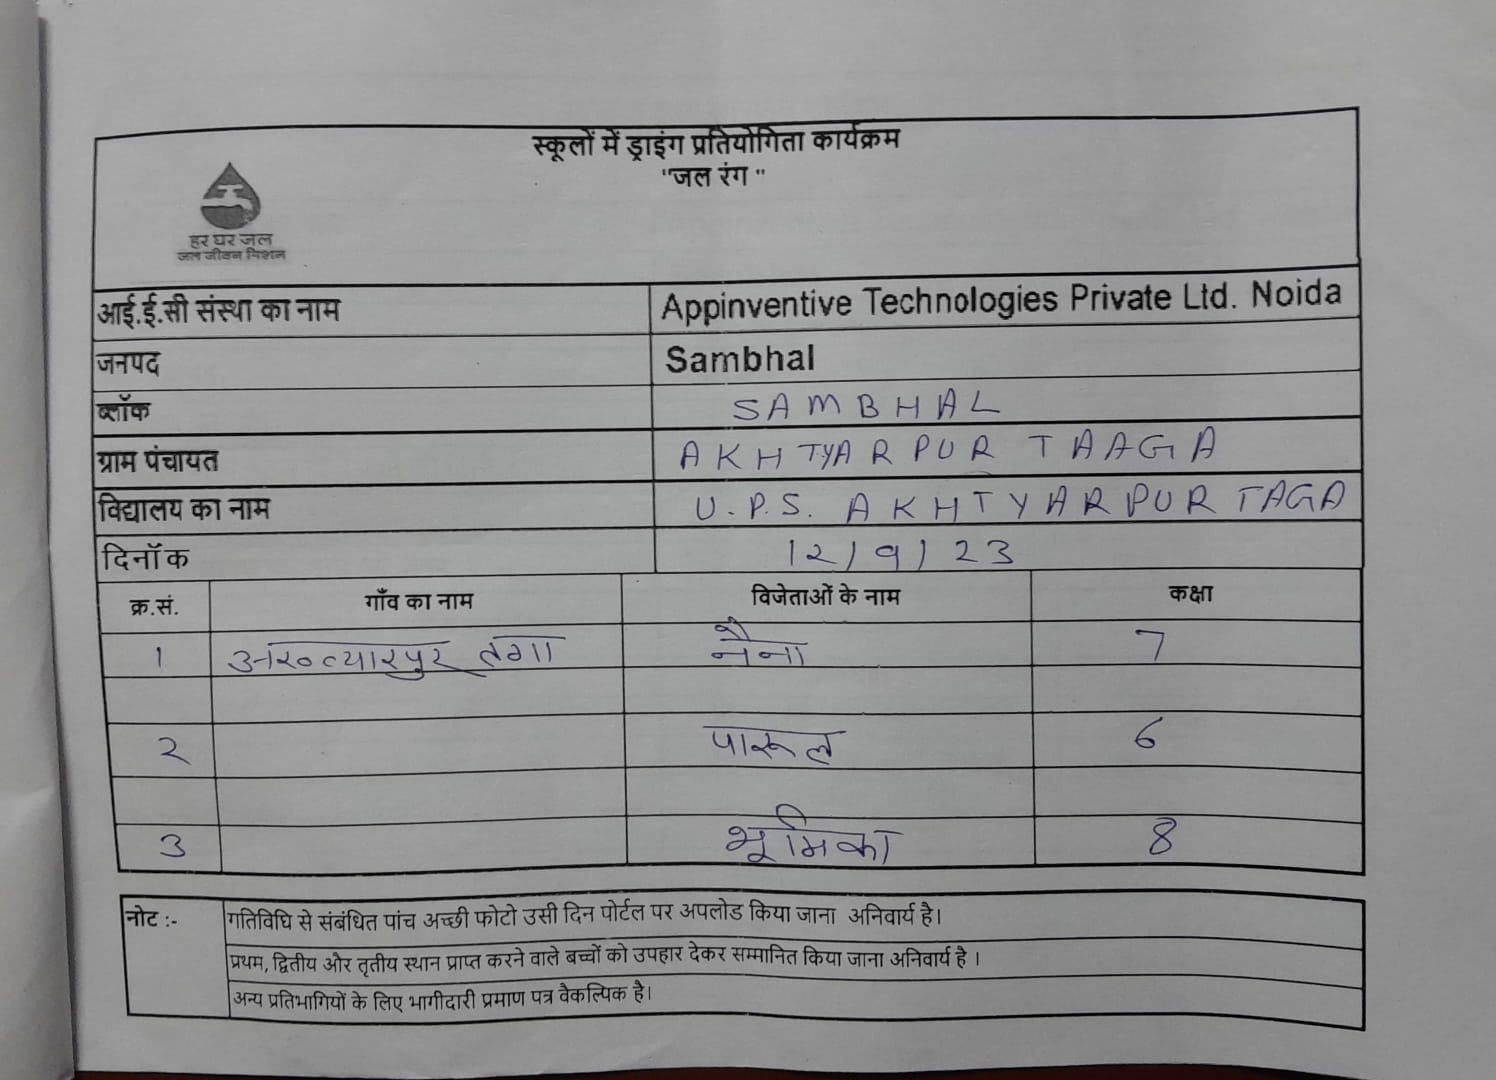 स्कूलों में ड्राइंग प्रतियोगिता कार्यक्रम
"जल रंग "
हर घर जल
जल जीवन मिशन
आई.ई.सी संस्था का नाम Appinventive Technologies Private Ltd. Noida
जनपद Sambhal
ब्लॉक SAMBHAL
ग्राम पंचायत AKHTYARPUR TAAGA
विद्यालय का नाम U.P.S. AKHTYARPUR TAGA
दिनॉक 12/9/23
क्र.सं. गाँव का नाम विजेताओं के नाम कक्षा
1 अख्त्यारपुर तगा नैना 7
2 पारूल 6
3 भूमिका 8
नोट :- गतिविधि से संबंधित पांच अच्छी फोटो उसी दिन पोर्टल पर अपलोड किया जाना अनिवार्य है।
प्रथम, द्वितीय और तृतीय स्थान प्राप्त करने वाले बच्चों को उपहार देकर सम्मानित किया जाना अनिवार्य है ।
अन्य प्रतिभागियों के लिए भागीदारी प्रमाण पत्र वैकल्पिक है।